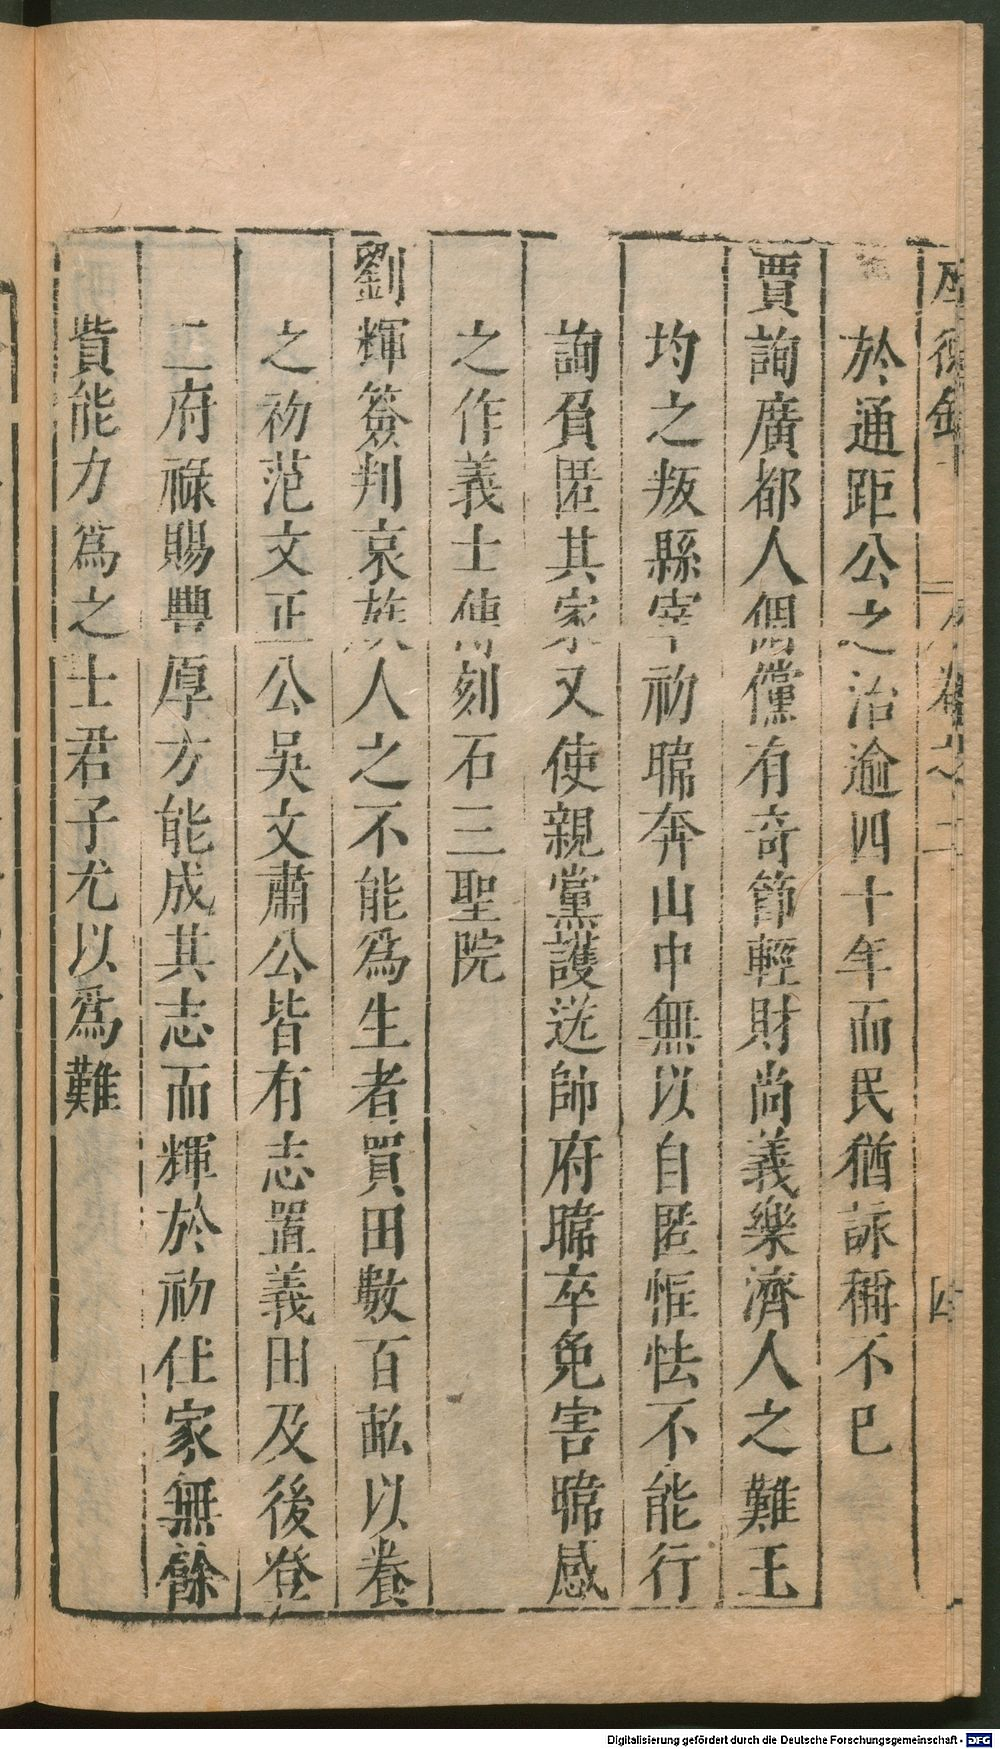 厚德錄 卷之二 四
於通距公之治逾四十年而民猶詠稱不已
賈詢廣都人倜儻有奇節輕財尚義樂濟人之難王
均之叛縣宰初暐奔山中無以自匿恇怯不能行
詢負匿其家又使親黨護送帥府暐卒免害暐感
之作義士傳刻石三聖院
劉輝簽判哀族人之不能爲生者買田數百畝以養
之初范文正公吳文肅公皆有志置義田及後登
二府祿賜豐厚方能成其志而輝於初仕家無餘
貲能力爲之士君子尤以爲難
Digitalisierung gefördert durch die Deutsche Forschungsgemeinschaft - DFG